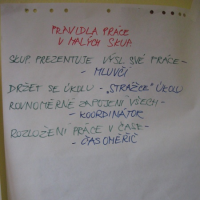 PRAVIDLA PRÁCE
V MALÝCH SKUP.
SKUP. PREZENTUJE VÝSL. SVÉ PRÁCE -
- MLUVČÍ
DRŽET SE ÚKOLU - "STRÁŽCE" ÚKOLU
ROVNOMĚRNÉ ZAPOJENÍ VŠECH -
- KOORDINÁTOR
ROZLOŽENÍ PRÁCE V ČASE -
- ČASOMĚŘIČ